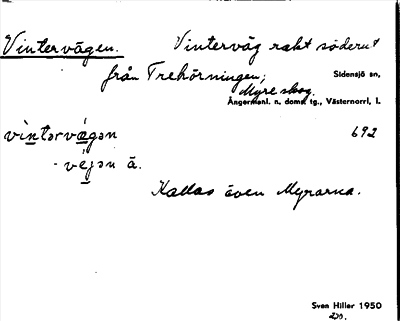 Vintervägen. Vinterväg rakt söderut
från Trehörningen; Sidensjö sn,
Myre skog.
Ångermanl. n. doms. tg., Västernorrl. l.
vìntərvǽgən 692
- véjən ä.
Kallas även Myrarna.
Sven Hiller 1950